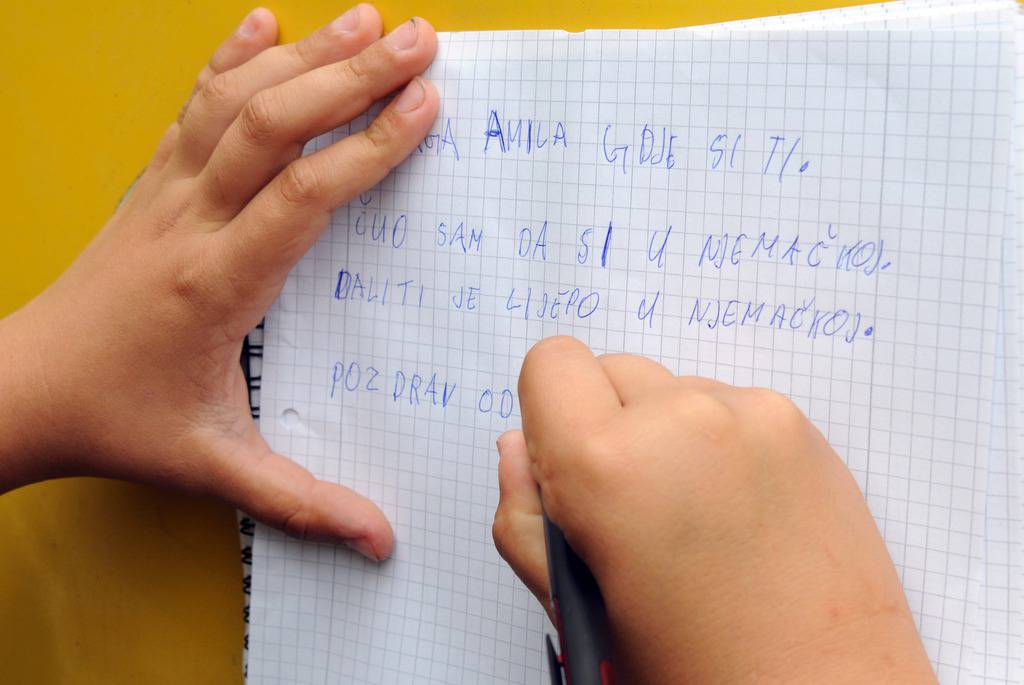 AMILA GDJE SI TI.
ČUO SAM DA SI U NJEMAČKOJ.
DALITI JE LIJEPO U NJEMAČKOJ.
POZDRAV OD